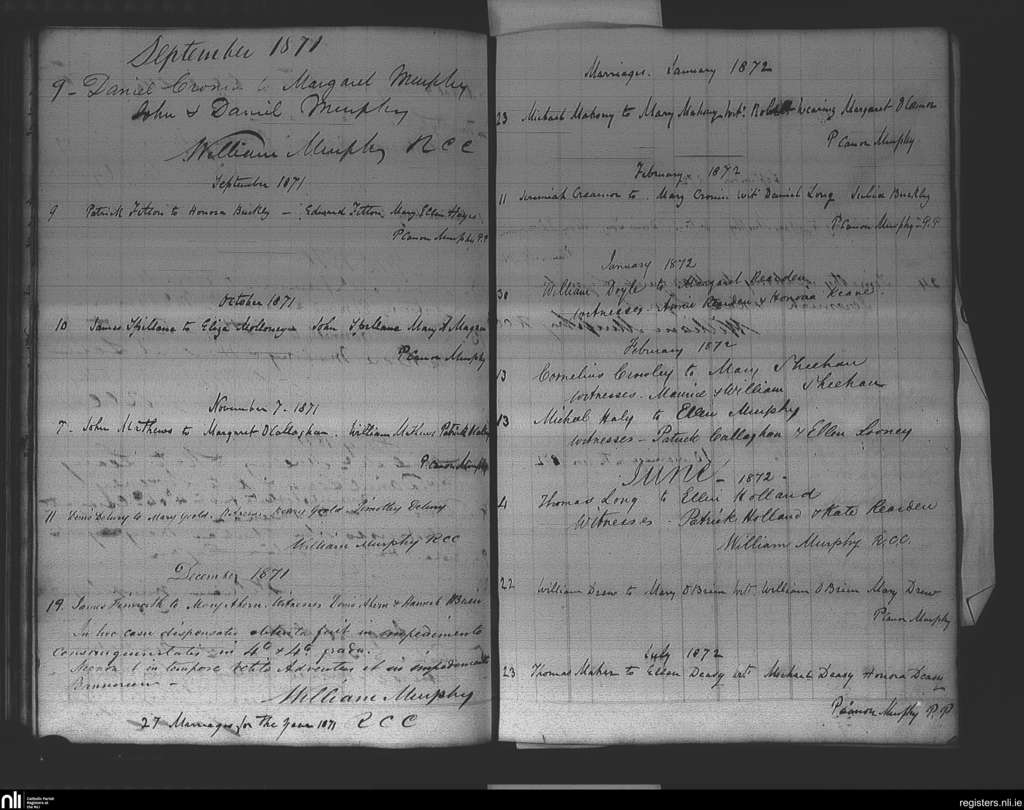 September 1871
9 - Daniel Cronin to Margaret Murphy
John & Daniel Murphy
William Murphy R C C
September 1871
9 Patrick Fitton to Honora Buckley - Edward Fitton, Mary Ellen Hayes
P Canon Murphy P.P
October 1871
10 James Spillane to Eliza Molloney John Spillane Mary A Magner
P Canon Murphy
November 7. 1871
7 - John Mathews to Margaret O Callaghan. William Mathews Patrick
P. Canon Murphy
11 Denis Delany to Mary Gould. Timothy Delany
William Murphy RCC
December 1871
19. James to Mary Ahern. Witnesses Denis Ahern & Hannah
In hoc casu dispensatio obtenta fuit in impedimento
Consanguinitatis in 4to & 4to gradu.
Necnon & in tempore Vetito Adventus et in impedimento
Bannorum -
William Murphy
27 Marriages for the Year 1871 R C C
Marriages. January 1872
23 Michael Mahony to Mary Mahony Wit. Robert Wearing Margaret O Connor
P Canon Murphy
February. 1872
11 Jeremiah Creamon to Mary Cronin Wit Daniel Long Julia Buckley
P Canon Murphy - P.P
January 1872
30 William Doyle to Margaret Rearden
Witnesses. Annie Rearden & Honora Keane.
February 1872
13 Cornelius Crowley to Mary Sheehan
Witnesses. Maurice & William Sheehan
13 Micheal Haly to Ellen Murphy
Witnesses - Patrick Callaghan & Ellen Looney
June - 1872 -
4 Thomas Long to Ellen Holland
Witnesses - Patrick Holland & Kate Rearden
William Murphy R.C.C.
22 William Drew to Mary O Brien Wit. William O Brien Mary Drew
P Canon Murphy
July 1872
23 Thomas Maher to Ellen Deasy Wit Michael Deasy Honora Deasy
P Canon Murphy P.P
nli
Catholic Parish
Registers at
the NLI
registers.nli.ie